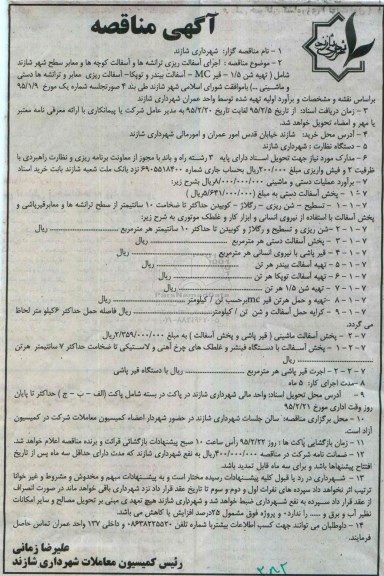 آگهی مناقصه
شهرداری شازند
۱ – نام مناقصه گزار: شهرداری شازند
۲ – موضوع مناقصه : اجرای آسفالت ریزی ترانشه ها و آسفالت کوچه ها و معابر سطح شهر شازند
شامل ( تهیه شن ۱/۵ – قیر MC – آسفالت بیندر و توپکا– آسفالت ریزی معابر و ترانشه ها دستی
و ماشینی ...) باموافقت شورای اسلامی شهر شازند طی بند ۴ صورتجلسه شماره یک مورخ ۹۵/۱/۹
براساس نقشه و مشخصات و برآورد اولیه تهیه شده توسط واحد عمران شهرداری شازند
۳ – زمان دریافت اسناد: از تاریخ ۹۵/۲/۵ لغایت تاریخ ۹۵/۲/۲۰ به مدیر عامل شرکت یا پیمانکاری با ارائه معرفی نامه معتبر
یا مهر و امضاء تحویل خواهد شد.
۴ – آدرس محل خرید: شازند خیابان قدس امور عمران و امورمالی شهرداری شازند
۵ – دستگاه نظارت : شهرداری شازند
۶ – مدارک مورد نیاز جهت تحویل اسناد دارای پایه ۳ رشته راه و باند با مجوز از معاونت برنامه ریزی و نظارت راهبردی با
ظرفیت ۲ و فیش واریزی مبلغ ۲۰۰/۰۰۰ریال بحساب جاری شماره ۶۹۰۵۵۱۸۴۰۰ نزد بانک ملت شعبه شازند بابت خرید اسناد
۷ – برآورد عملیات دستی و ماشینی ۸/۰۰۰/۰۰۰/۰۰۰ریال بشرح زیر:
۷ – ۱ – پخش آسفالت دستی به مبلغ (۵/۶۴۱/۰۰۰/۰۰۰ریال)
۷ – ۱ – ۱ – تسطیح – شن ریزی – رگلاژ – کوبیدن حداکثر تا ضخامت ۱۰ سانتیمتر از سطح ترانشه ها و معابرقیرپاشی و
پخش آسفالت با استفاده از نیروی انسانی و ابزار کار و غلطک موتوری به شرح زیر:
۷ – ۱ – ۲ – شن ریزی و تسطیح و رگلاژ و کوبیدن تا حداکثر ۱۰ سانتیمتر هر مترمربع ........ ریال
۷ – ۱ – ۳ – پخش آسفالت دستی هر مترمربع ........ ریال
۷ – ۱ – ۴ – قیر پاشی با نیروی انسانی هر مترمربع ........ ریال
۷ – ۱ – ۵ – تهیه آسفالت بیندر هر تن ........ ریال
۷ – ۱ – ۶ – تهیه آسفالت توپکا هر تن ........ ریال
۷ – ۱ – ۷ – تهیه شن ۱/۵ هر تن ........ ریال
۷ – ۱ – ۸ –تهیه و حمل هرتن قیر mcبرحسب تن / کیلومتر ........ ریال
۷ – ۱ – ۹ – کرایه حمل آسفالت و شن تن / کیلومتر........ ریال فاصله حمل حداکثر ۶کیلو متر لحاظ
می گردد.
۷ – ۲ – پخش آسفالت ماشینی ( قیر پاشی و پخش آسفالت ) به مبلغ ۲/۳۵۹/۰۰۰/۰۰۰ریال
۷ – ۲ – ۱ – پخش آسفالت با دستگاه فینشر و غلطک های چرخ آهنی و لاستیکی تا ضخامت حداکثر ۷ سانتیمتر هرتن
........ ریال
۷ – ۲ – ۲ – اجرت قیر پاشی هر مترمربع ........ ریال با دستگاه قیر پاشی
۸ –مدت اجرای کار: ۵ ماه
۹ – آدرس محل تحویل اسناد: واحد مالی شهرداری شازند در پاکت در بسته شامل پاکت (الف – ب – ج ) حداکثر تا پایان
روز وقت اداری مورخ ۹۵/۲/۲۱
۱۰ – محل برگزاری مناقصه: سالن جلسات شهرداری شازند در حضور شهردار اعضاء کمیسیون معاملات شرکت در کمیسیون
آزاد است.
۱۱ – زمان بازگشایی پاکت ها : روز ۹۵/۲/۲۲ رأس ساعت ۱۰ صبح پیشنهادات بازگشائی قرائت و برنده مناقصه اعلام خواهد شد.
۱۲ – ضمانت نامه شرکت در مناقصه ۴۰۰/۰۰۰/۰۰۰ریال به نفع شهرداری شازند که مدت دارای حداقل سه ماه پس از تاریخ
افتتاح پیشنهادها باشد و برای سه ماه قابل تمدید باشد.
۱۳ – شهرداری در رد یا قبول کلیه پیشنهادات رسیده مختار است و به پیشنهادات مبهم و مخدوش و مشروط و غیر خوانا
ترتیب اثر نخواهد داد سپرده های نفرات اول و دوم و سوم تا تاریخ عقد قرار داد نزد شهرداری باقی خواهد ماند در صورت انصراف
از عقد قرار داد سپرده به نفع شهرداری ضبط خواهد شد و شهرداری شازند هیچ تعهدی مبنی بر تحویل مصالح و سایر امکانات
نظیر آب و برق و ..... را ندارد- و پروژه فوق مشمول ۲۵درصد افزایش یا کاهش می باشد.
۱۴ – داوطلبان می توانند جهت کسب اطلاعات بیشتربا شماره تلفن ۰۸۶۳۸۲۲۵۵۲۰ و داخلی ۱۳۷ واحد عمران تماس حاصل
فرمایند.
علیرضا زمانی
رئیس کمیسیون معاملات شهرداری شازند